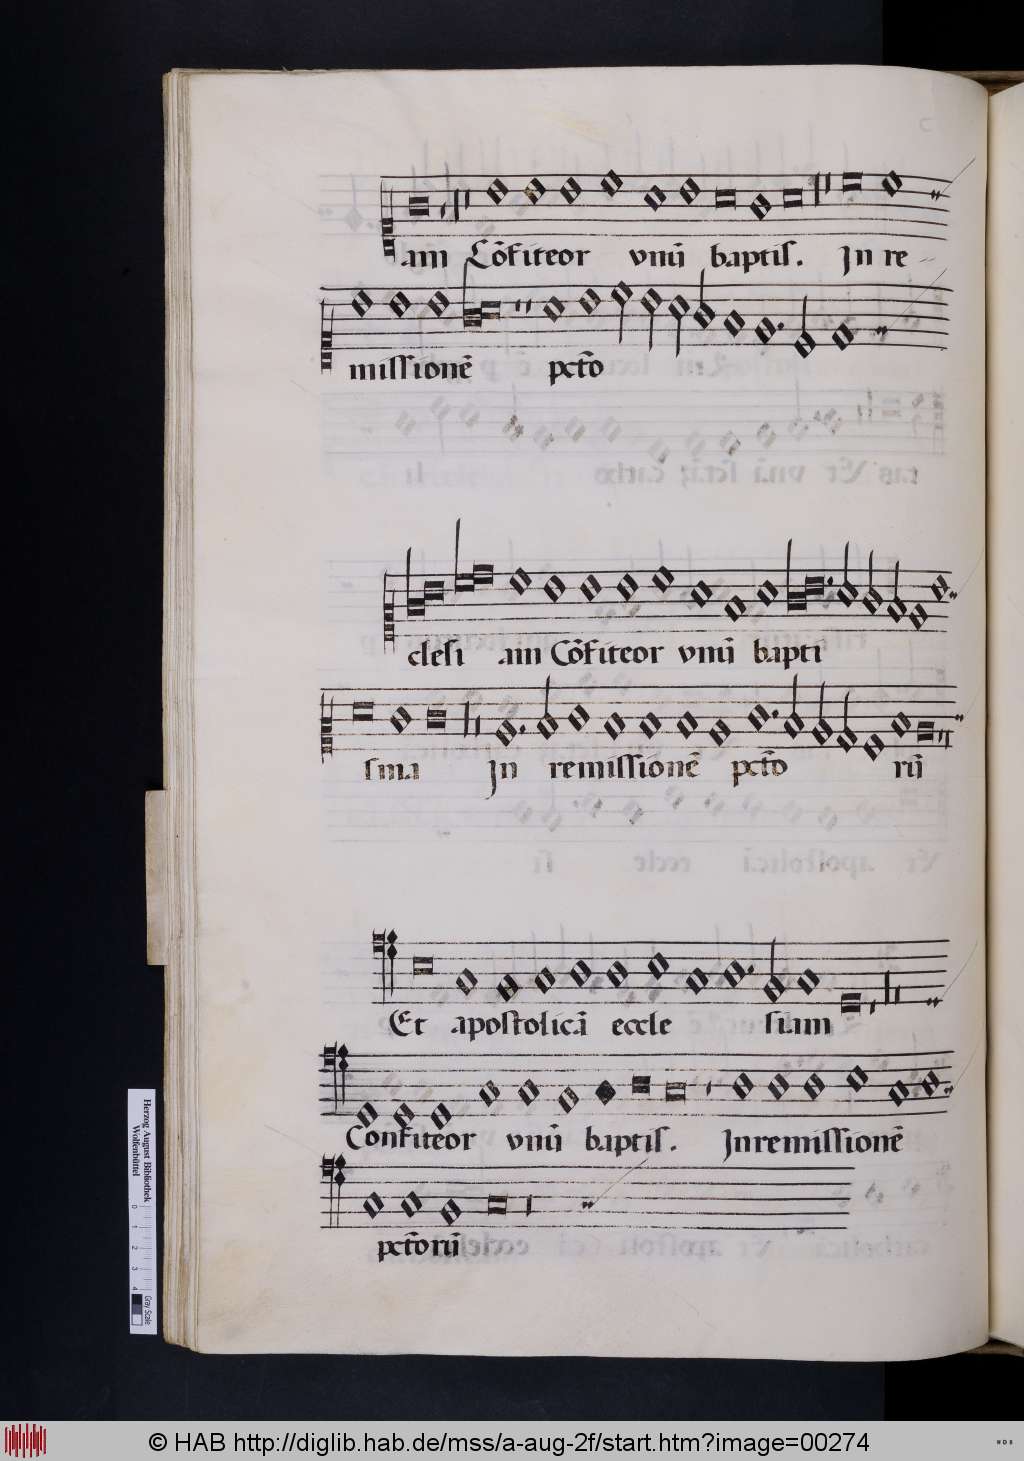 am Cõfiteor vnũ baptis. In re
missionẽ pctõ
clesi am Cõfiteor vnũ bapti
sma In remissionẽ pctõ rũ
Et apostolicã eccle siam
Confiteor vnũ baptis. In remissionẽ
pctõrũ
Herzog August Bibliothek
Wolfenbüttel
0 1 2 3 4
Gray Scale
© HAB http://diglib.hab.de/mss/a-aug-2f/start.htm?image=00274